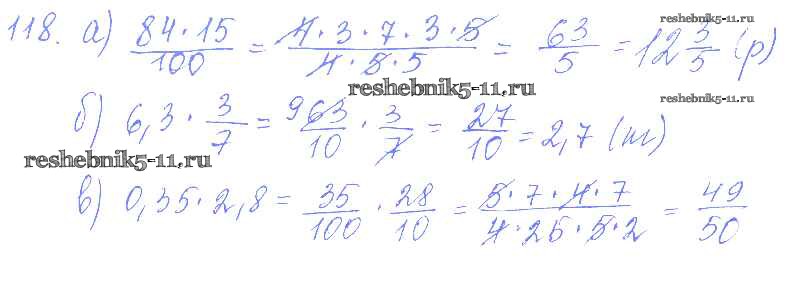 118. а) 84·15/100 = 4·3·7·3·5/4·5·5 = 63/5 = 12 3/5 (р)
reshebnik5-11.ru.
reshebnik5-11.ru
reshebnik5-11.ru.
б) 6,3 · 3/7 = 9 63/10 · 3/7 = 27/10 = 2,7 (м)
reshebnik5-11.ru
в) 0,35·2,8 = 35/100 · 28/10 = 5·7·4·7/4·25·5·2 = 49/50